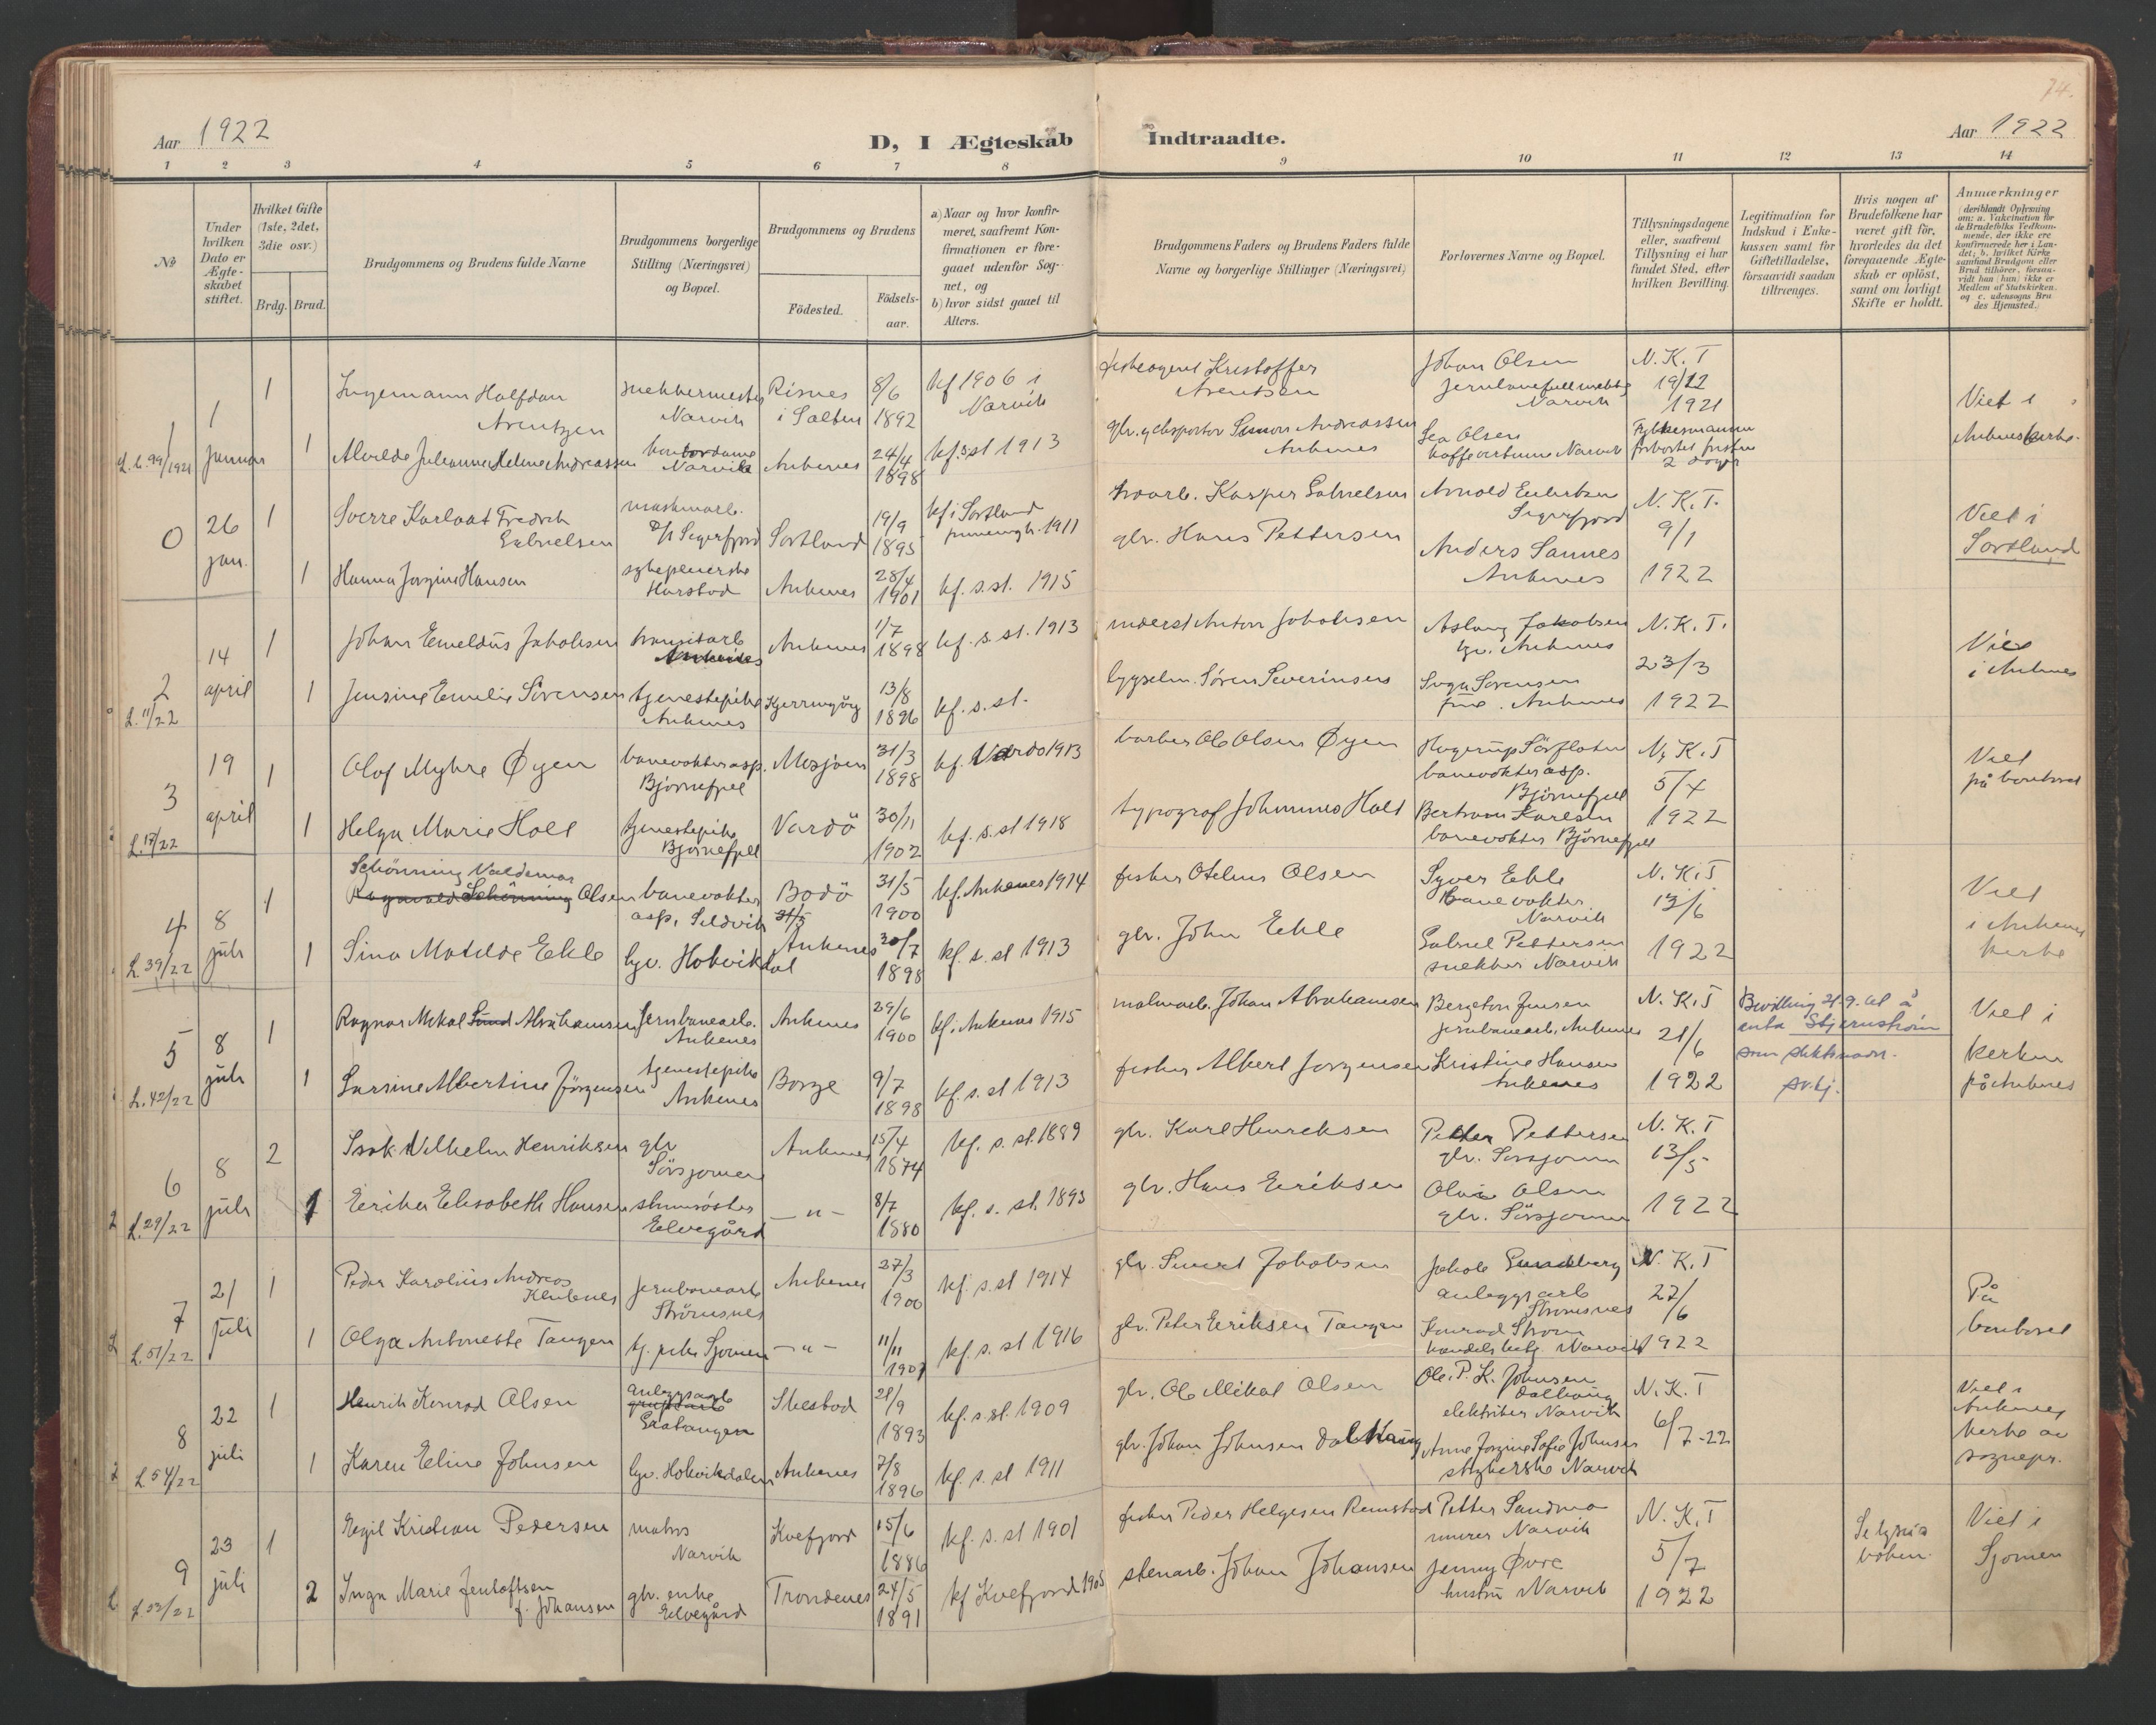 74.
Aar 1922
D, I Ægteskab Indtraadte.
Aar 1922
1 2 3 4 5 6 7 8 9 10 11 12 13 14
No
Under hvilken Dato er Ægte-skabet stiftet.
Hvilket Gifte (1ste, 2det, 3die osv.)
Brdg. Brud.
Brudgommens og Brudens fulde Navne
Brudgommens borgerlige Stilling (Næringsvei) og Bopæl.
Brudgommens og Brudens
Födested.
Födsels-aar.
a) Naar og hvor konfir-meret, saafremt Kon-firmationen er fore-gaaet udenfor Sog-net, og
b) hvor sidst gaaet til Alters.
Brudgommens Faders og Brudens Faders fulde Navne og borgerlige Stillinger (Næringsvei)
Forlovernes Navne og Bopæl.
Tillysningsdagene eller, saafremt Tillysning ei har fundet Sted, efter hvilken Bevilling.
Legitimation for Indskud i Enke-kassen samt for Giftetilladelse, forsaavidt saadan tiltrænges.
Hvis nogen af Brudefolkene har været gift för, hvorledes da det foregaaende Ægte-skab er oplöst, samt om lovligt Skifte er holdt.
Anmærkninger (deriblandt Oplysning om: a. Vakcination for de Brudefolks Vedkom-mende, der ikke ere konfirmerede her i Lan-det; b. hvilket Kirke samfund Brudgom eller Brud tilhörer, forsaa-vidt han (hun) ikke er Medlem af Statskirken. og c. udensogns Bru des Hjemsted.)
1
L. 99/1921
1 januar
1 Ingemann Halfdan Arentzen
snekkermester Narvik
Risnes i Salten
8/6 1892
kf 1906 i Narvik
Kristoffer Arentsen
Johan Olsen Narvik
N. K. T 19/12 1921
Viet i Ankenes kerke.
1 Alvilde Julianna Helene Andreassen
kontordame Narvik
Ankenes
24/4 1898
kf. s. st 1913
Simon Andreassen Ankenes
Lea Olsen Narvik
2 dager
0
26 jan.
1 Sverre Karlaat Fredrik Gabrielsen
D/S Sigerfjord
Sortland
19/9 1895
kf i Sortland 1911
Kasper Gabrielsen
Arnold Sigerfjord
N. K. T. 9/1 1922
Viet i Sortland
1 Hanna Jorgine Hansen
sykepleierske Harstad
Ankenes
28/4 1901
kf. s. st. 1915
gbr. Hans Pettersen
Anders Sannes Ankenes
2
L. 11/22
14 april
1 Johan Emeldus Jakobsen
transitarb Ankenes
Ankenes
1/7 1898
kf. s. st. 1913
Anton Jakobsen
Aslaug Jakobsen Ankenes
N. K. T. 23/3 1922
Viet i Ankenes
1 Jensine Emelie Sörensen
tjenestepike Ankenes
Kjerringöy
13/8 1896
kf. s. st.
Sören Severinsen
Inga Sörensen frue. Ankenes
3
L. 17/22
19 april
1 Olaf Myhre Øyen
banevokterasp. Björnefjell
Mosjöen
31/3 1898
kf. Vardö 1913
barber Ole Olsen Øyen
Hagerup banevokterasp. Björnefjell
N. K. T 5/4 1922
Viet på kontoret
1 Helga Marie Holt
tjenestepike Björnefjell
Vardö
30/11 1902
kf. s. st 1918
typograf Johannes Holt
Bertram Karlsen banevokter Björnefjell
4
L. 39/22
8 juli
1 Schönning Valdemar Olsen
banevokter asp. Sildvik
Bodö
31/5 1900
kf. Ankenes 1914
fisker Otelius Olsen
Syver Ekle Banevokter Narvik
N. K. T 13/6 1922
Viet i Ankenes kerke
1 Sina Matilde Ekle
hjv. Hokvikdal
Ankenes
30/7 1898
kf. s. st 1913
gbr. John Ekle
Gabriel Pettersen snekker Narvik
5
L. 42/22
8 juli
1 Ragnar Mikal Abrahamsen
Jernbanearb. Ankenes
Ankenes
29/6 1900
kf. Ankenes 1915
malmarb. Johan Abrahamsen
Bergeton Jensen jernbanearb. Ankenes
N. K. T 21/6 1922
Bevilling 21.9.61 å enta Stjernström som slektsnavn. sv.tj.
Viet i kerken på Ankenes
1 Larsine Albertine Jörgensen
tjenestepike Ankenes
Borge
9/7 1898
kf. s. st 1913
fisker Albert Jorgensen
Kristine Hansen Ankenes
6
L. 29/22
8 juli
2 Isak Vilhelm Henriksen
gbr Sörsjomen
Ankenes
15/4 1874
kf. s. st. 1889
gbr. Karl Henreksen
Petter Pettersen gbr. Sörsjomen
N. K. T 13/5 1922
1 Eerika Elisabeth Hansen
Elvegård
— " —
8/7 1880
kf. s. st. 1893
gbr. Hans Eeriksen
Olai Olsen gbr. Sörsjomen
7
L. 51/22
21 juli
1 Peder Karolius Andreas Klubnes
jernbanearb Strömsnes
Ankenes
27/3 1900
kf. s. st 1914
gbr. Sivert Jakobsen
Jakob Sundberg anleggsarb Strömsnes
N. K. T 27/6 1922
På kontoret
1 Olga Antonette Tangen
tj. pike Sjomen
— " —
11/11 1901
kf. s. st 1916
gbr. Peter Eeriksen Tangen
Konrad Strom Narvik
8
L. 54/22
22 juli
1 Henrik Konrad Olsen
anleggsarb Gratangen
Skestad
21/9 1893
kf. s. st. 1909
gbr. Ole Mikal Olsen
Ole. P. K. Johnsen Dalhaug elektriker Narvik
N. K. T 6/7-22
Viet i Ankenes kerke av sognepr.
1 Karen Eline Johnsen
hjv. Hokvikdalen
Ankenes
7/8 1896
kf. s. st 1911
gbr. Johan Johnsen Dalhaug
Anne Jorgine Sofie Johnsen Narvik
9
L. 53/22
23 juli
1 Kristian Pedersen
matros Narvik
Kvefjord
15/6 1886
kf. s. st 1901
fisker Peder Helgesen Remstad
Petter Sandmo murer Narvik
N. K. T 5/7 1922
Viet i Sjomen
2 Inga Marie Jentoftsen f. Johansen
gbr. enke Elvegård
Trondenes
24/5 1891
kf Kvefjord 1905
stenarb. Johan Johansen
Jenny Øvre hustru Narvik